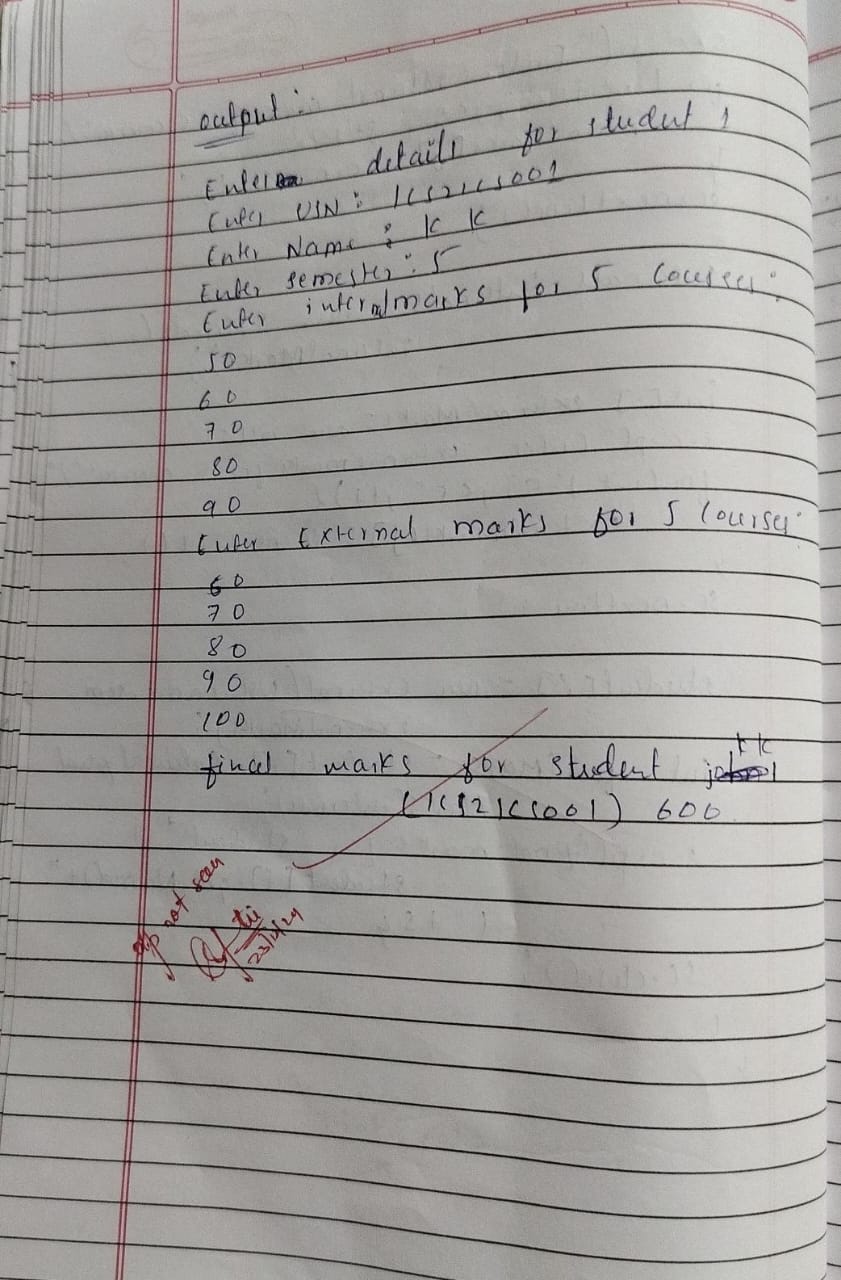 output :
Enter details for student 1
Enter USN : 1CS21CS001
Enter Name : K K
Enter semester : 5
Enter internal marks for 5 Courses :
50
60
70
80
90
Enter External marks for 5 Courses :
60
70
80
90
100
final marks for student KK
(1CS21CS001) 600
o/p not seen